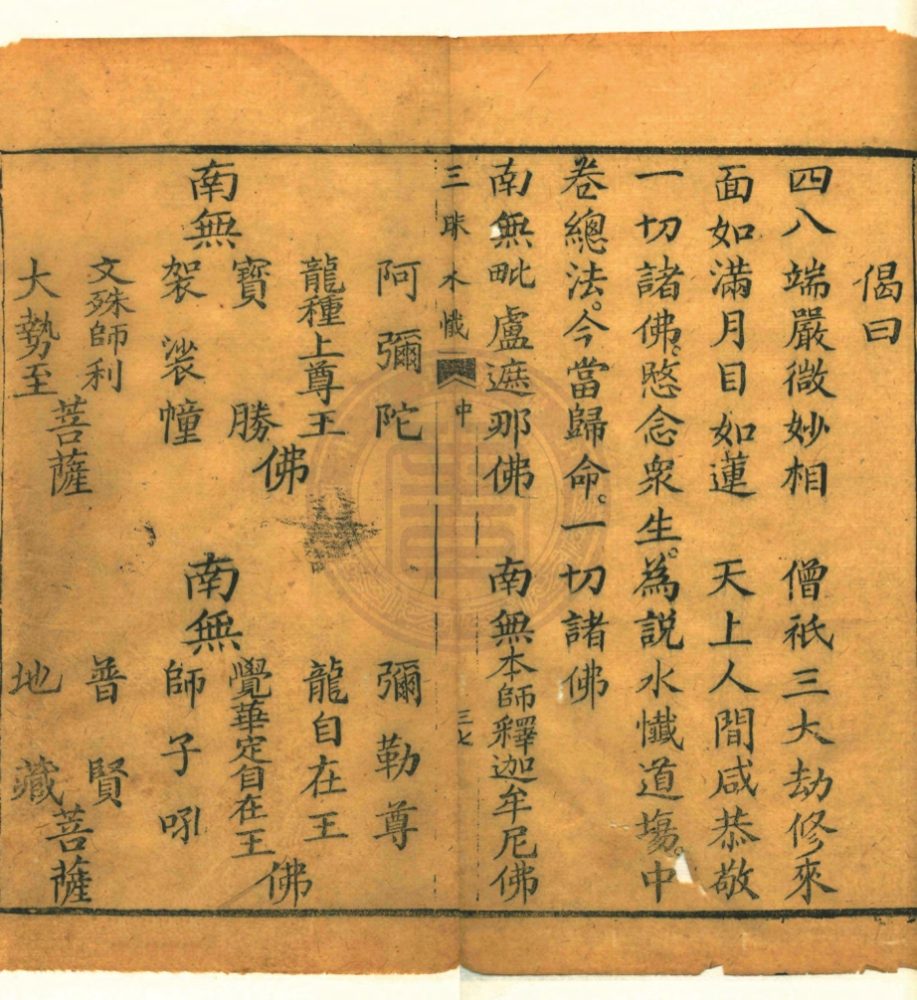 偈曰
四八端嚴微妙相　僧祇三大劫修來
面如滿月目如蓮　天上人間咸恭敬
一切諸佛。愍念衆生。為説水懺道塲。中
卷總法。今當歸命。一切諸佛
南無毗盧遮那佛　南無本師釋迦牟尼佛
三昧水懺　中　三七
南無
阿彌陀
龍種上尊王
寶勝
袈裟幢
佛
文殊師利
大勢至
菩薩
南無
彌勒尊
龍自在王
覺華定自在王
師子吼
佛
普賢
地藏
菩薩